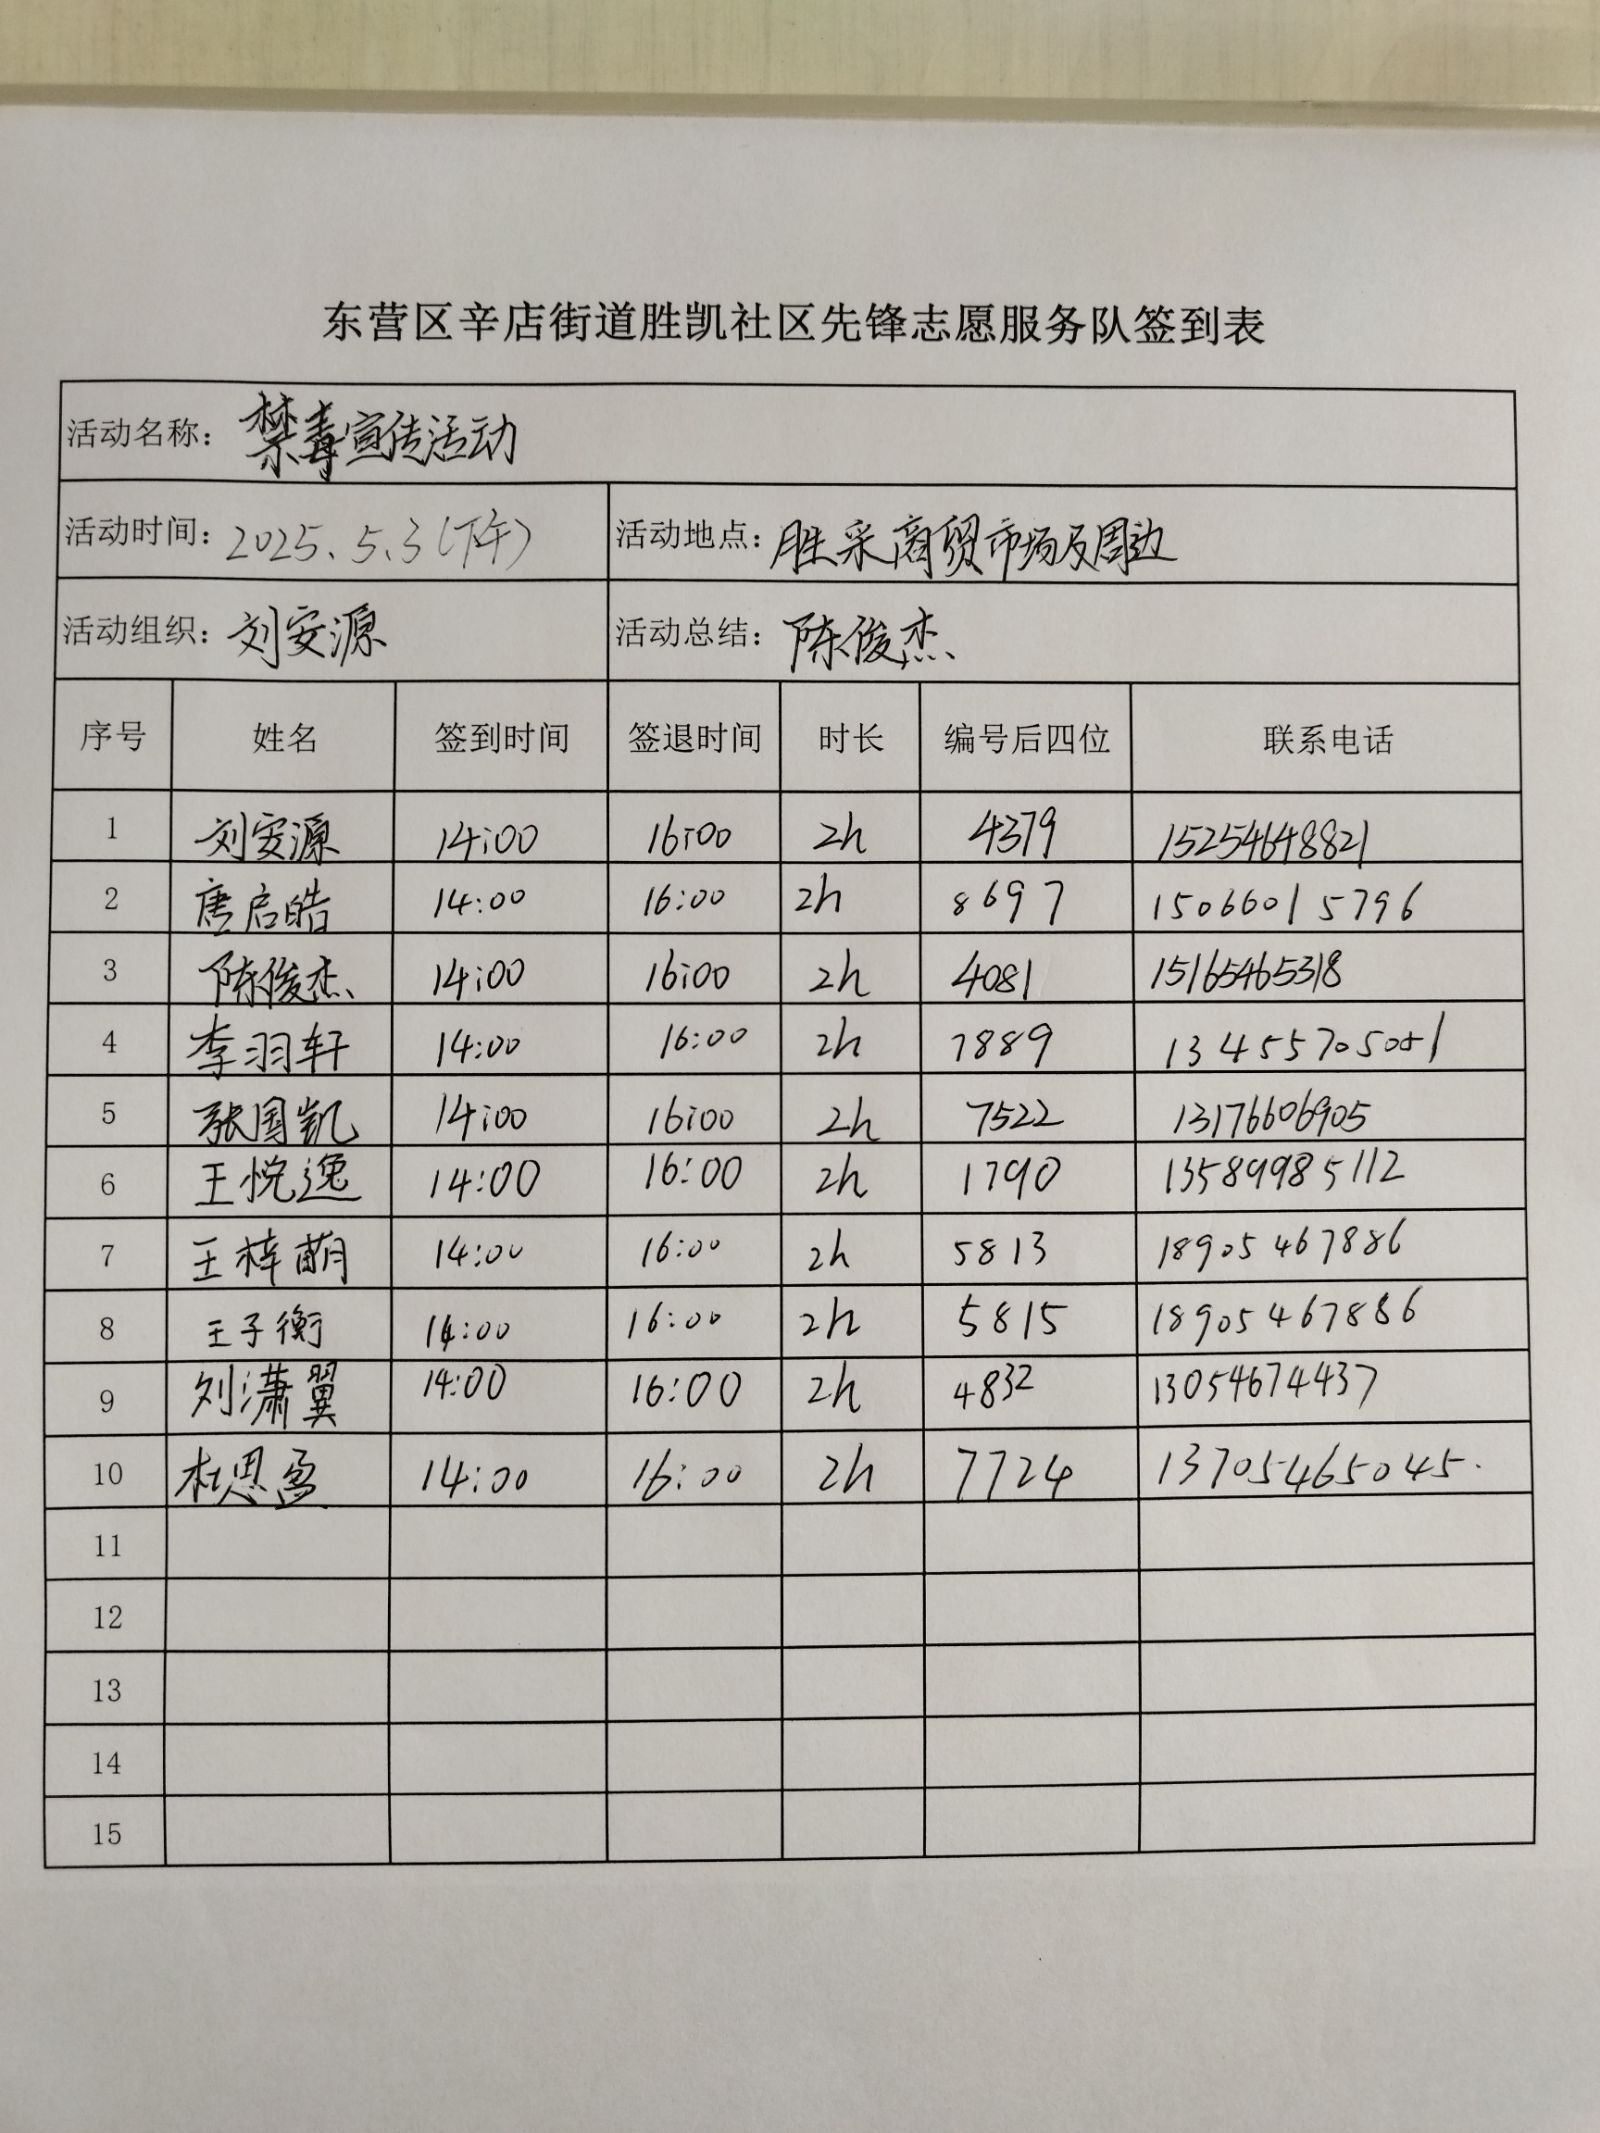 东营区辛店街道胜凯社区先锋志愿服务队签到表
活动名称：禁毒宣传活动
活动时间：2025.5.3(下午) 活动地点：胜采商贸市场及周边
活动组织：刘安源 活动总结：陈俊杰
序号 姓名 签到时间 签退时间 时长 编号后四位 联系电话
1 刘安源 14:00 16:00 2h 4379 15254648821
2 唐启皓 14:00 16:00 2h 8697 15066015796
3 陈俊杰 14:00 16:00 2h 4081 15165465318
4 李羽轩 14:00 16:00 2h 7889 13455705051
5 张国凯 14:00 16:00 2h 7522 13176606905
6 王悦逸 14:00 16:00 2h 1790 13589985112
7 王梓萌 14:00 16:00 2h 5813 18905467886
8 王子衡 14:00 16:00 2h 5815 18905467886
9 刘潇翼 14:00 16:00 2h 4832 13054674437
10 杜思盈 14:00 16:00 2h 7724 13705465045.
11
12
13
14
15